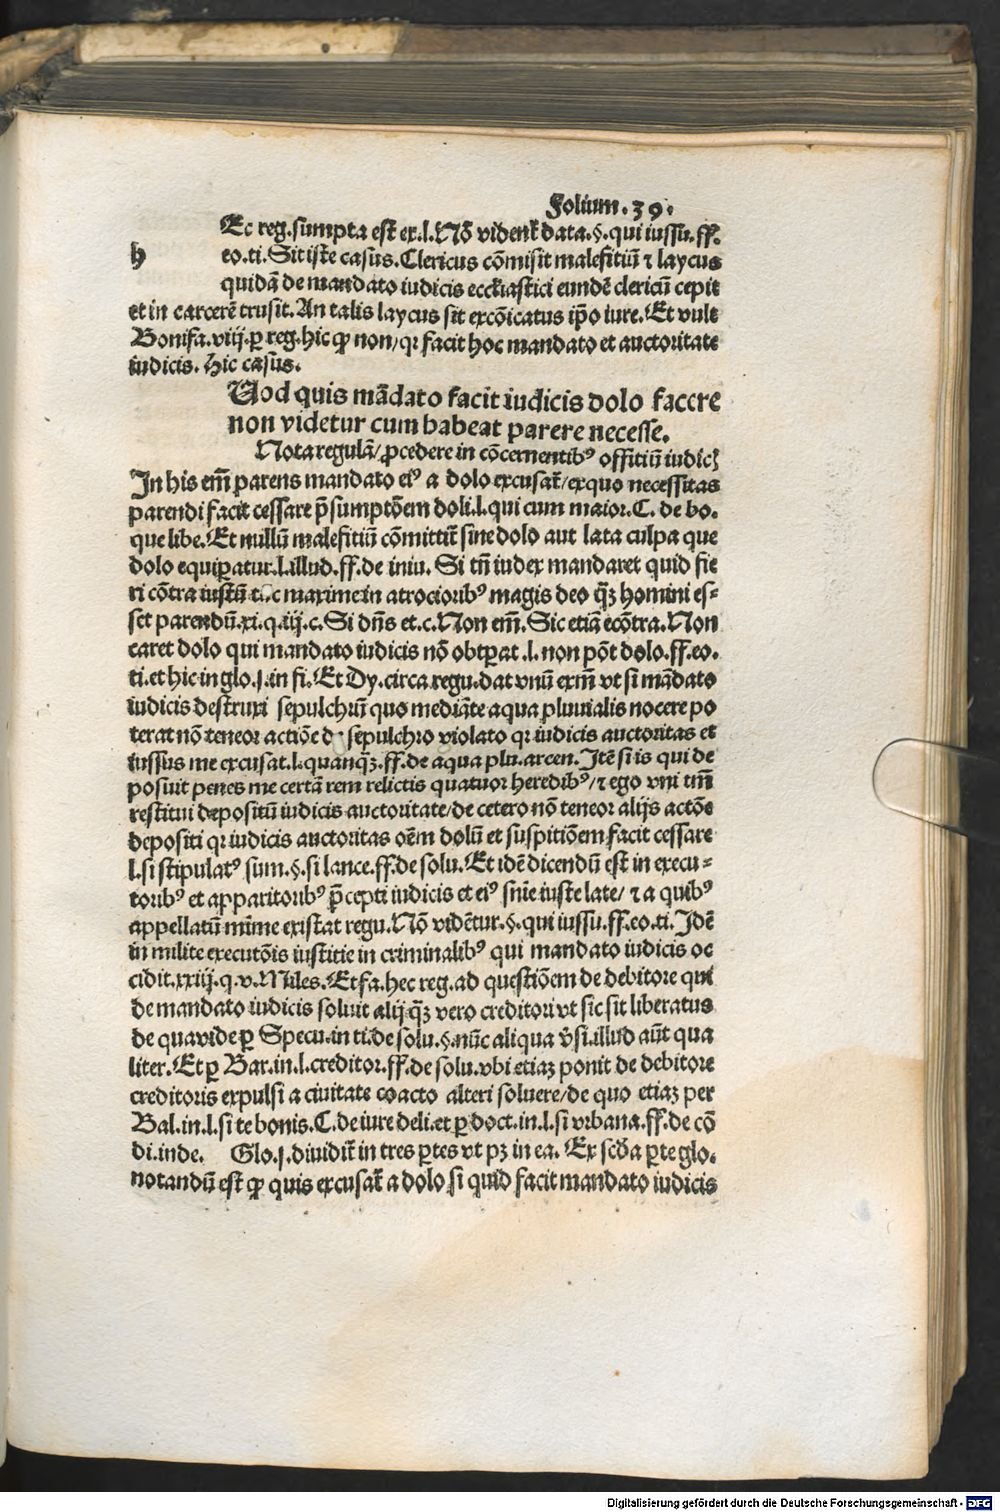 Folium.39.
h Ec reg.sumpta est ex.l.Nō vident̄ data.§.qui iussu.ff.
eo.ti.Sit iste casus.Clericus cōmisit malefitiū ⁊ laycus
quidā de mandato iudicis ecclesiastici eundē clericū cepit
et in carcerē trusit.An talis laycus sit excōicatus ip̄o iure.Et vult
Bonifa.viij.ꝑ reg.hic ꝙ non/qꝛ facit hoc mandato et auctoritate
iudicis. Hic casus.
Uod quis mādato facit iudicis dolo facere
non videtur cum habeat parere necesse.
Nota regulā/ꝓcedere in cōcernentibꝰ offitiū iudicꝭ
In his em̄ parens mandato eiꝰ a dolo excusat̄/ex quo necessitas
parendi facit cessare p̄sumptōem doli.l.qui cum maior.C. de bo.
que libe.Et nullū malefitiū cōmittit̄ sine dolo aut lata culpa que
dolo equiꝑatur.l.illud.ff.de iniu. Si tn̄ iudex mandaret quid fie
ri cōtra iustū maxime in atrocioribꝰ magis deo qꝫ homini es⸗
set parendū.xi.q.iij.c.Si dn̄s et.c.Non em̄.Sic etiā ecōtra.Non
caret dolo qui mandato iudicis nō obtꝑat.l.non pōt dolo.ff.eo.
ti.et hic in glo.j.in fi.Et Dy.circa regu.dat vnū exm̄ vt si mādato
iudicis destruxi sepulchrū quo mediāte aqua pluuialis nocere po
terat nō teneor actiōe sepulchro violato qꝛ iudicis auctoritas et
iussus me excusat.l.quanqꝫ.ff.de aqua plu.arcen.Itē si is qui de
posuit penes me certā rem relictis quatuor heredibꝰ/⁊ ego vni tm̄
restitui depositū iudicis auctoritate/de cetero nō teneor alijs actōe
depositi qꝛ iudicis auctoritas oēm dolū et suspitiōem facit cessare
l.si stipulatꝰ sum.§.si lance.ff.de solu.Et idē dicendū est in execu⸗
toribꝰ et apparitoribꝰ p̄cepti iudicis et eiꝰ sn̄ie iuste late/ ⁊ a quibꝰ
appellatū mīme existat regu.Nō vidētur.§.qui iussu.ff.eo.ti.Idē
in milite executōis iustitie in criminalibꝰ qui mandato iudicis oc
cidit.xxiij.q.v.Miles.Et fa.hec reg.ad questiōem de debitore qui
de mandato iudicis soluit alij qꝫ vero creditori vt sic sit liberatus
de qua vide ꝑ Specu.in ti.de solu.§.nūc aliqua v̓si.illud aūt qua
liter.Et ꝑ Bar.in.l.creditor.ff.de solu.vbi etiaꝫ ponit de debitore
creditoris expulsi a ciuitate coacto alteri soluere/de quo etiaꝫ per
Bal.in.l.si te bonis.C.de iure deli.et ꝑ doct.in.l.si vrbana.ff.de cō
di.inde. Glo.j.diuidit̄ in tres ꝑtes vt pꝫ in ea. Ex scḋa ꝑte glo.
notandū est ꝙ quis excusat̄ a dolo si quid facit mandato iudicis
Digitalisierung gefördert durch die Deutsche Forschungsgemeinschaft - DFG